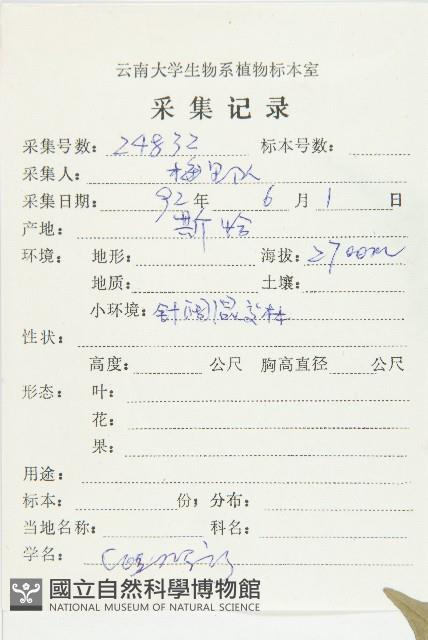 云南大学生物系植物标本室
采集记录
采集号数: 24832 标本号数:
采集人: 梅里队
采集日期: 92 年 6 月 1 日
产地: 斯恰
环境: 地形: 海拔: 2700m
地质: 土壤:
小环境: 针阔混交林
性状:
高度: 公尺 胸高直径 公尺
形态: 叶:
花:
果:
用途:
标本: 份; 分布:
当地名称: 科名:
学名:
國立自然科學博物館
NATIONAL MUSEUM OF NATURAL SCIENCE